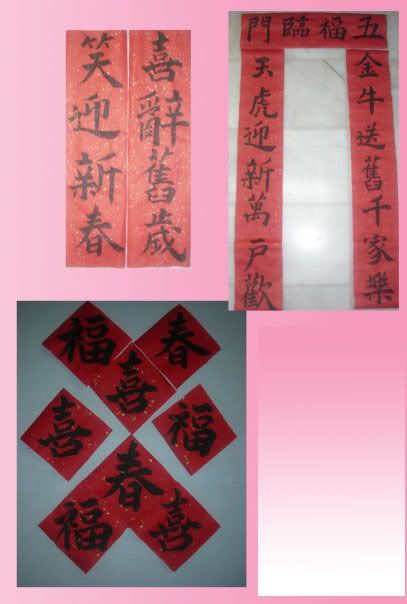 喜辭舊歲
笑迎新春
五福臨門
金牛送舊千家樂
玉虎迎新萬戶歡
福
春
喜
喜
福
春
福
喜